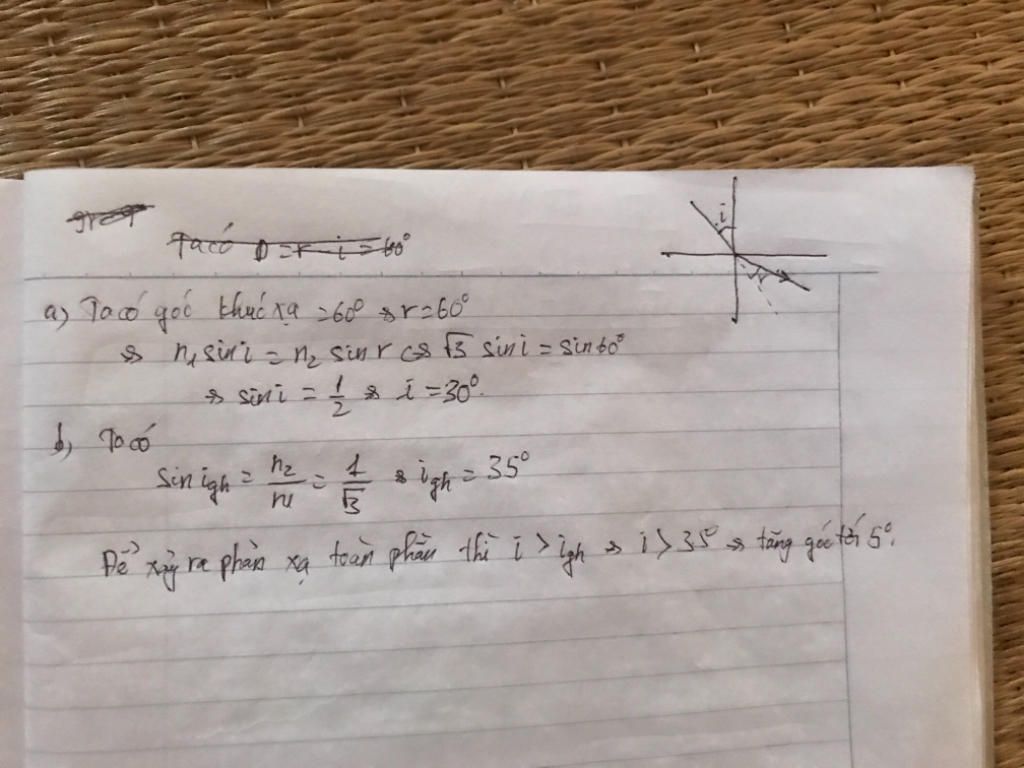 Ta có D = r - i = 60°
i
r
a) Ta có góc khúc xạ = 60° => r = 60°
=> n₁ sin i = n₂ sin r <=> √3 sin i = sin 60°
=> sin i = 1/2 => i = 30°.
b) Ta có
sin igh = n₂/n₁ = 1/√3 => igh = 35°
Để xảy ra phản xạ toàn phần thì i > igh => i > 35° => tăng góc tới 5°.